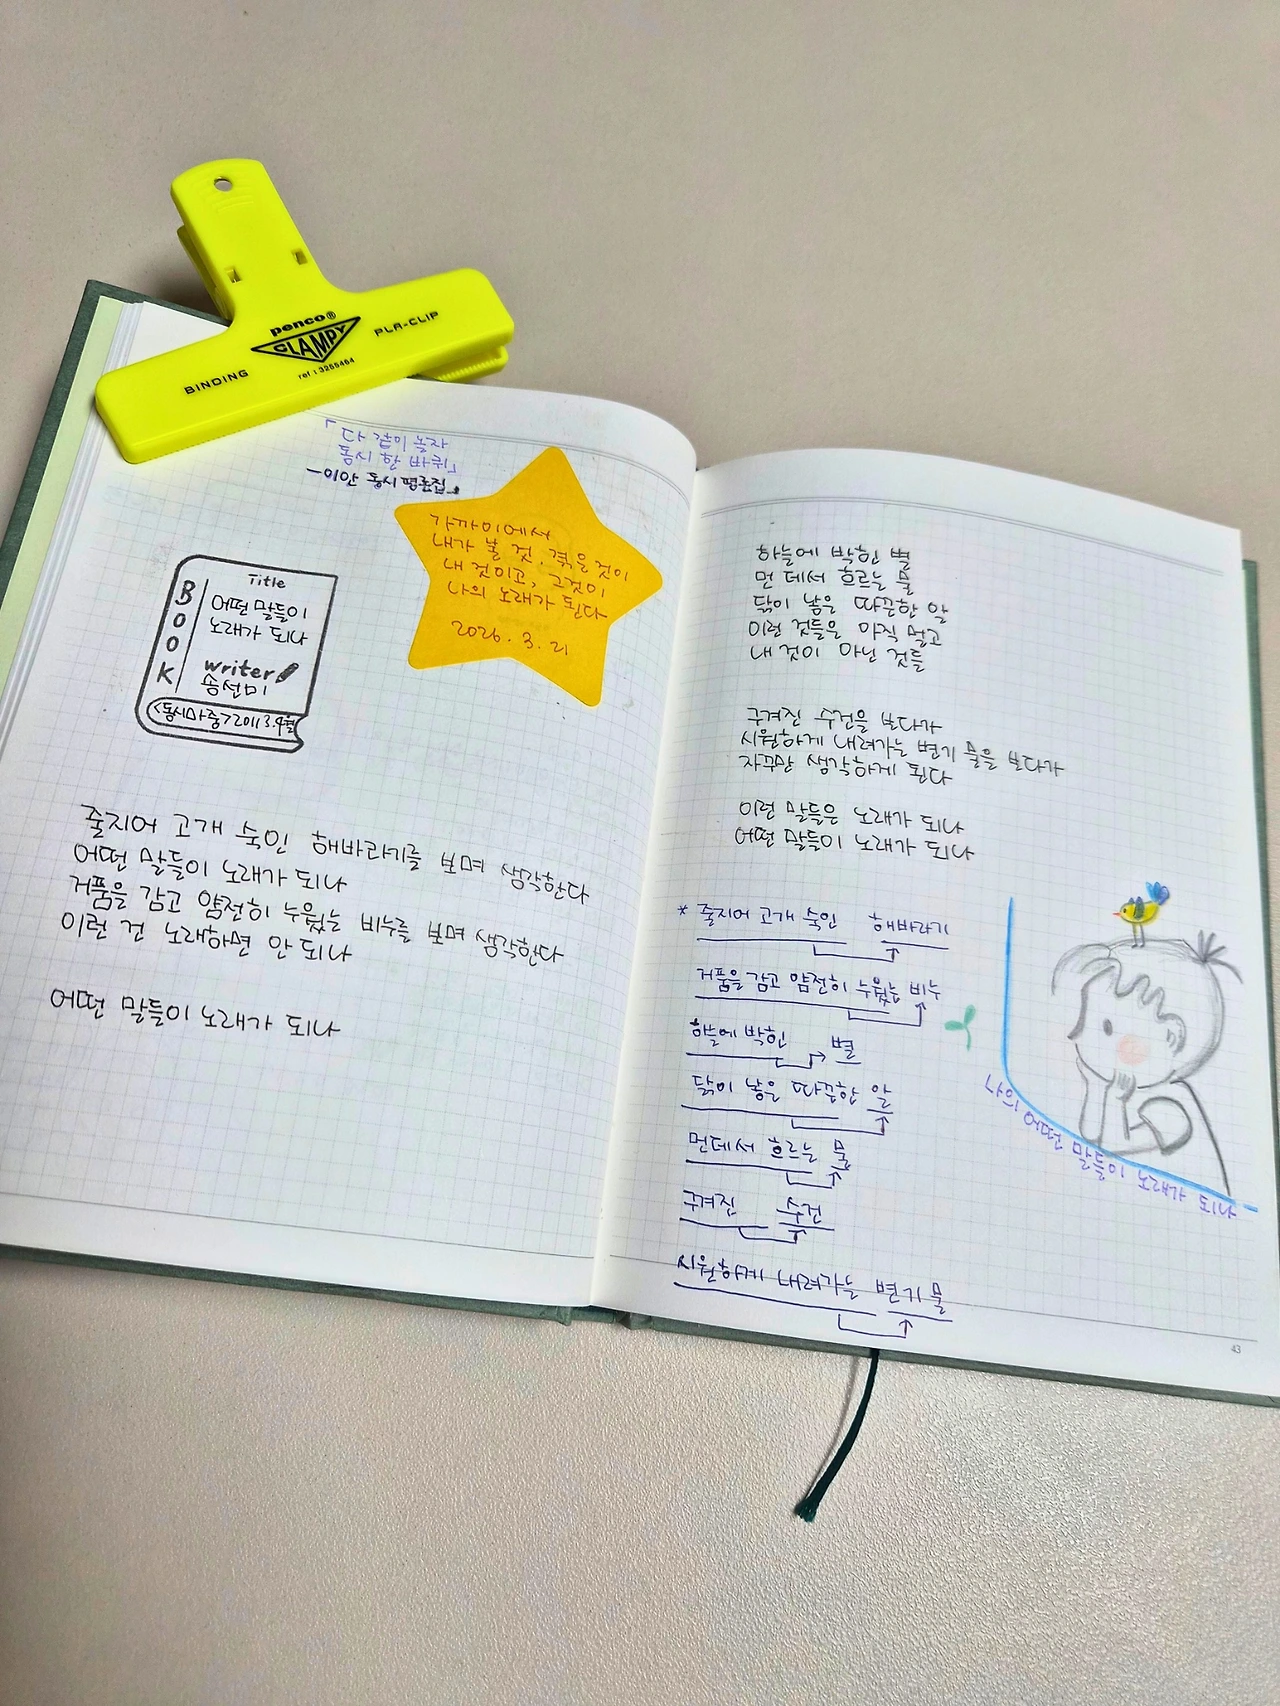 penco®
CLAMPY
BINDING
PLA-CLIP
ref : 3265464
「다 같이 놀자
동시 한 바퀴」
-이안 동시 평론집-
가까이에서
내가 본 것. 겪은 것이
내 것이고, 그것이
나의 노래가 된다
2026. 3. 21
BOOK
Title
어떤 말들이
노래가 되나
writer
송선미
<동시마중> 2011 3.4월
줄지어 고개 숙인 해바라기를 보며 생각한다
어떤 말들이 노래가 되나
거품을 감고 얌전히 누웠는 비누를 보며 생각한다
이런 건 노래하면 안 되나
어떤 말들이 노래가 되나
하늘에 박힌 별
먼 데서 흐르는 물
닭이 낳은 따끈한 알
이런 것들은 아직 멀고
내 것이 아닌 것들
구겨진 수건을 보다가
시원하게 내려가는 변기 물을 보다가
자꾸만 생각하게 된다
이런 말들은 노래가 되나
어떤 말들이 노래가 되나
* 줄지어 고개 숙인 해바라기
거품을 감고 얌전히 누웠는 비누
하늘에 박힌 별
닭이 낳은 따끈한 알
먼데서 흐르는 물
구겨진 수건
시원하게 내려가는 변기 물
나의 어떤 말들이 노래가 되나
43